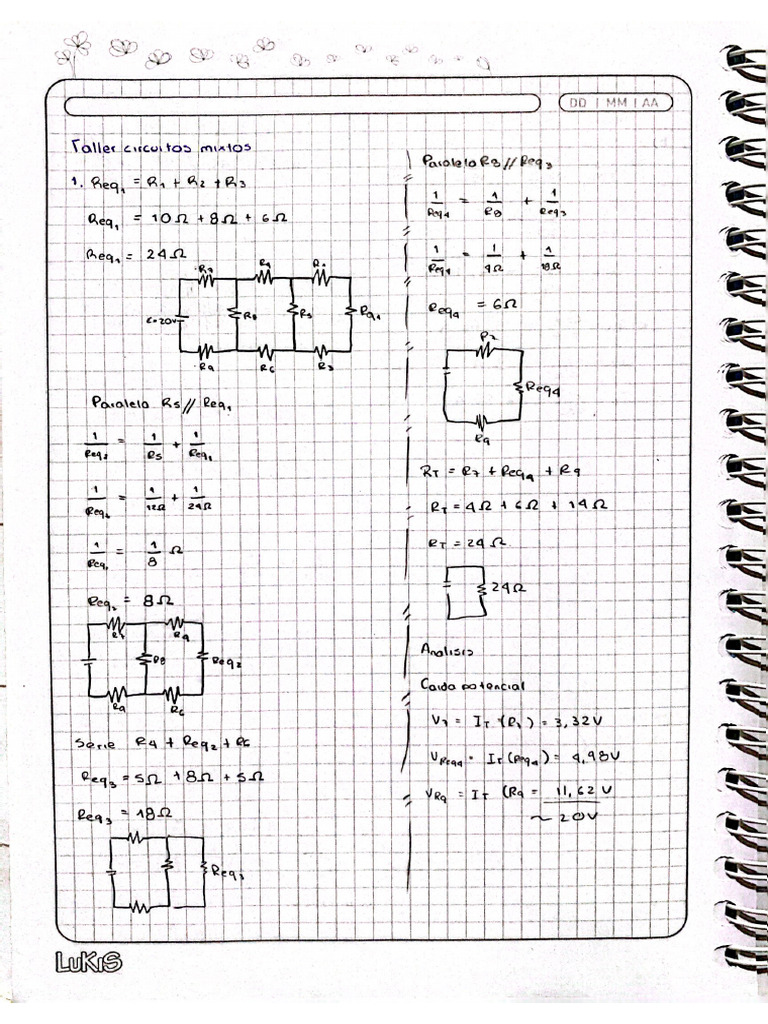 DD | MM | AA
Taller circuitos mixtos
1. Req₁ = R₁ + R₂ + R₃
Req₁ = 10Ω + 8Ω + 6Ω
Req₁ = 24Ω
R7
R4
E=20V
R8
R5
Req₁
R9
R6
R3
Paralelo R5 // Req₁
1/Req₂ = 1/R5 + 1/Req₁
1/Req₂ = 1/12Ω + 1/24Ω
1/Req₂ = 1/8 Ω
Req₂ = 8Ω
R7
R4
R8
Req₂
R9
R6
Serie R4 + Req₂ + R6
Req₃ = 5Ω + 8Ω + 5Ω
Req₃ = 18Ω
Req₃
Paralelo R8 // Req₃
1/Req₄ = 1/R8 + 1/Req₃
1/Req₄ = 1/9Ω + 1/18Ω
Req₄ = 6Ω
R7
Req4
R9
RT = R7 + Req₄ + R9
RT = 4Ω + 6Ω + 14Ω
RT = 24Ω
24Ω
Analisis
Caida potencial
V₇ = IT·(R₇) = 3,32V
VReq4 = IT(Req4) = 4,98V
VR9 = IT (R9 = 11,62 V
~ 20V
LUKIS